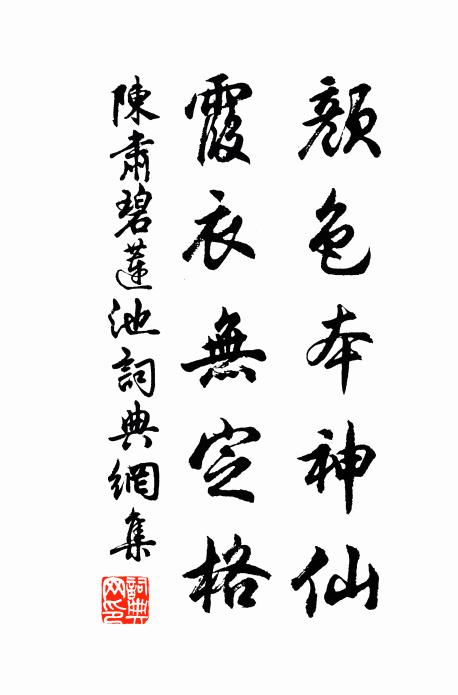 顏色本神仙
霞衣無定格
陳肅碧蓮池詞典網集
詞典網印